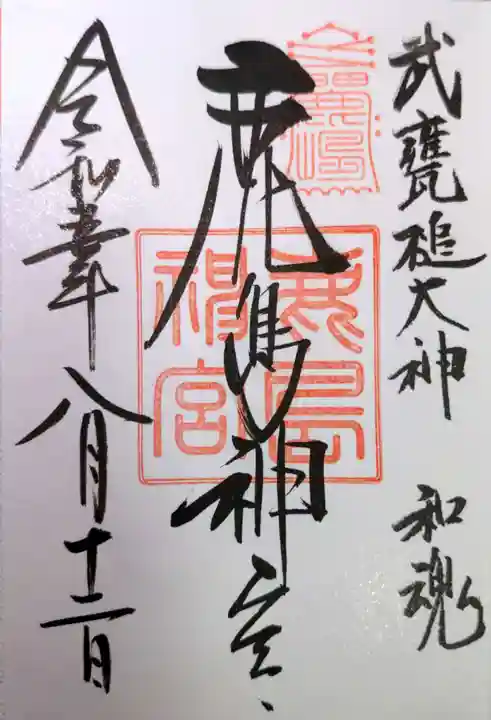 武甕槌大神 和魂
鹿島神宮
鹿島神宮
令和 年八月十二日